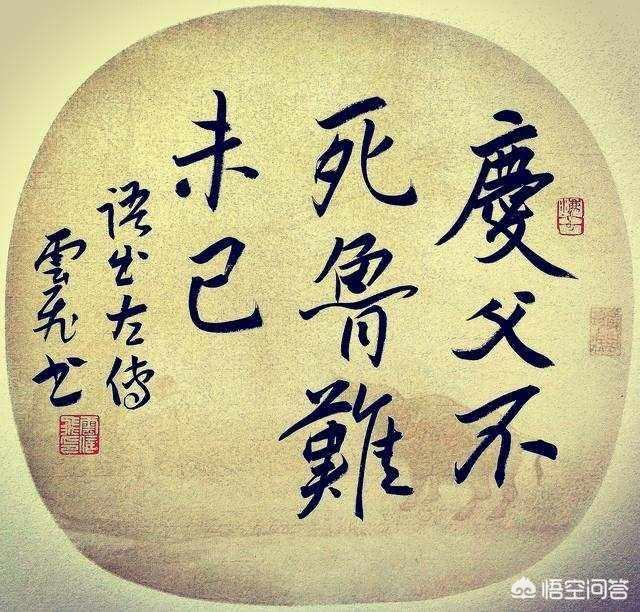 慶父不
死魯難
未已
语出左傳
雲飛书
悟空问答